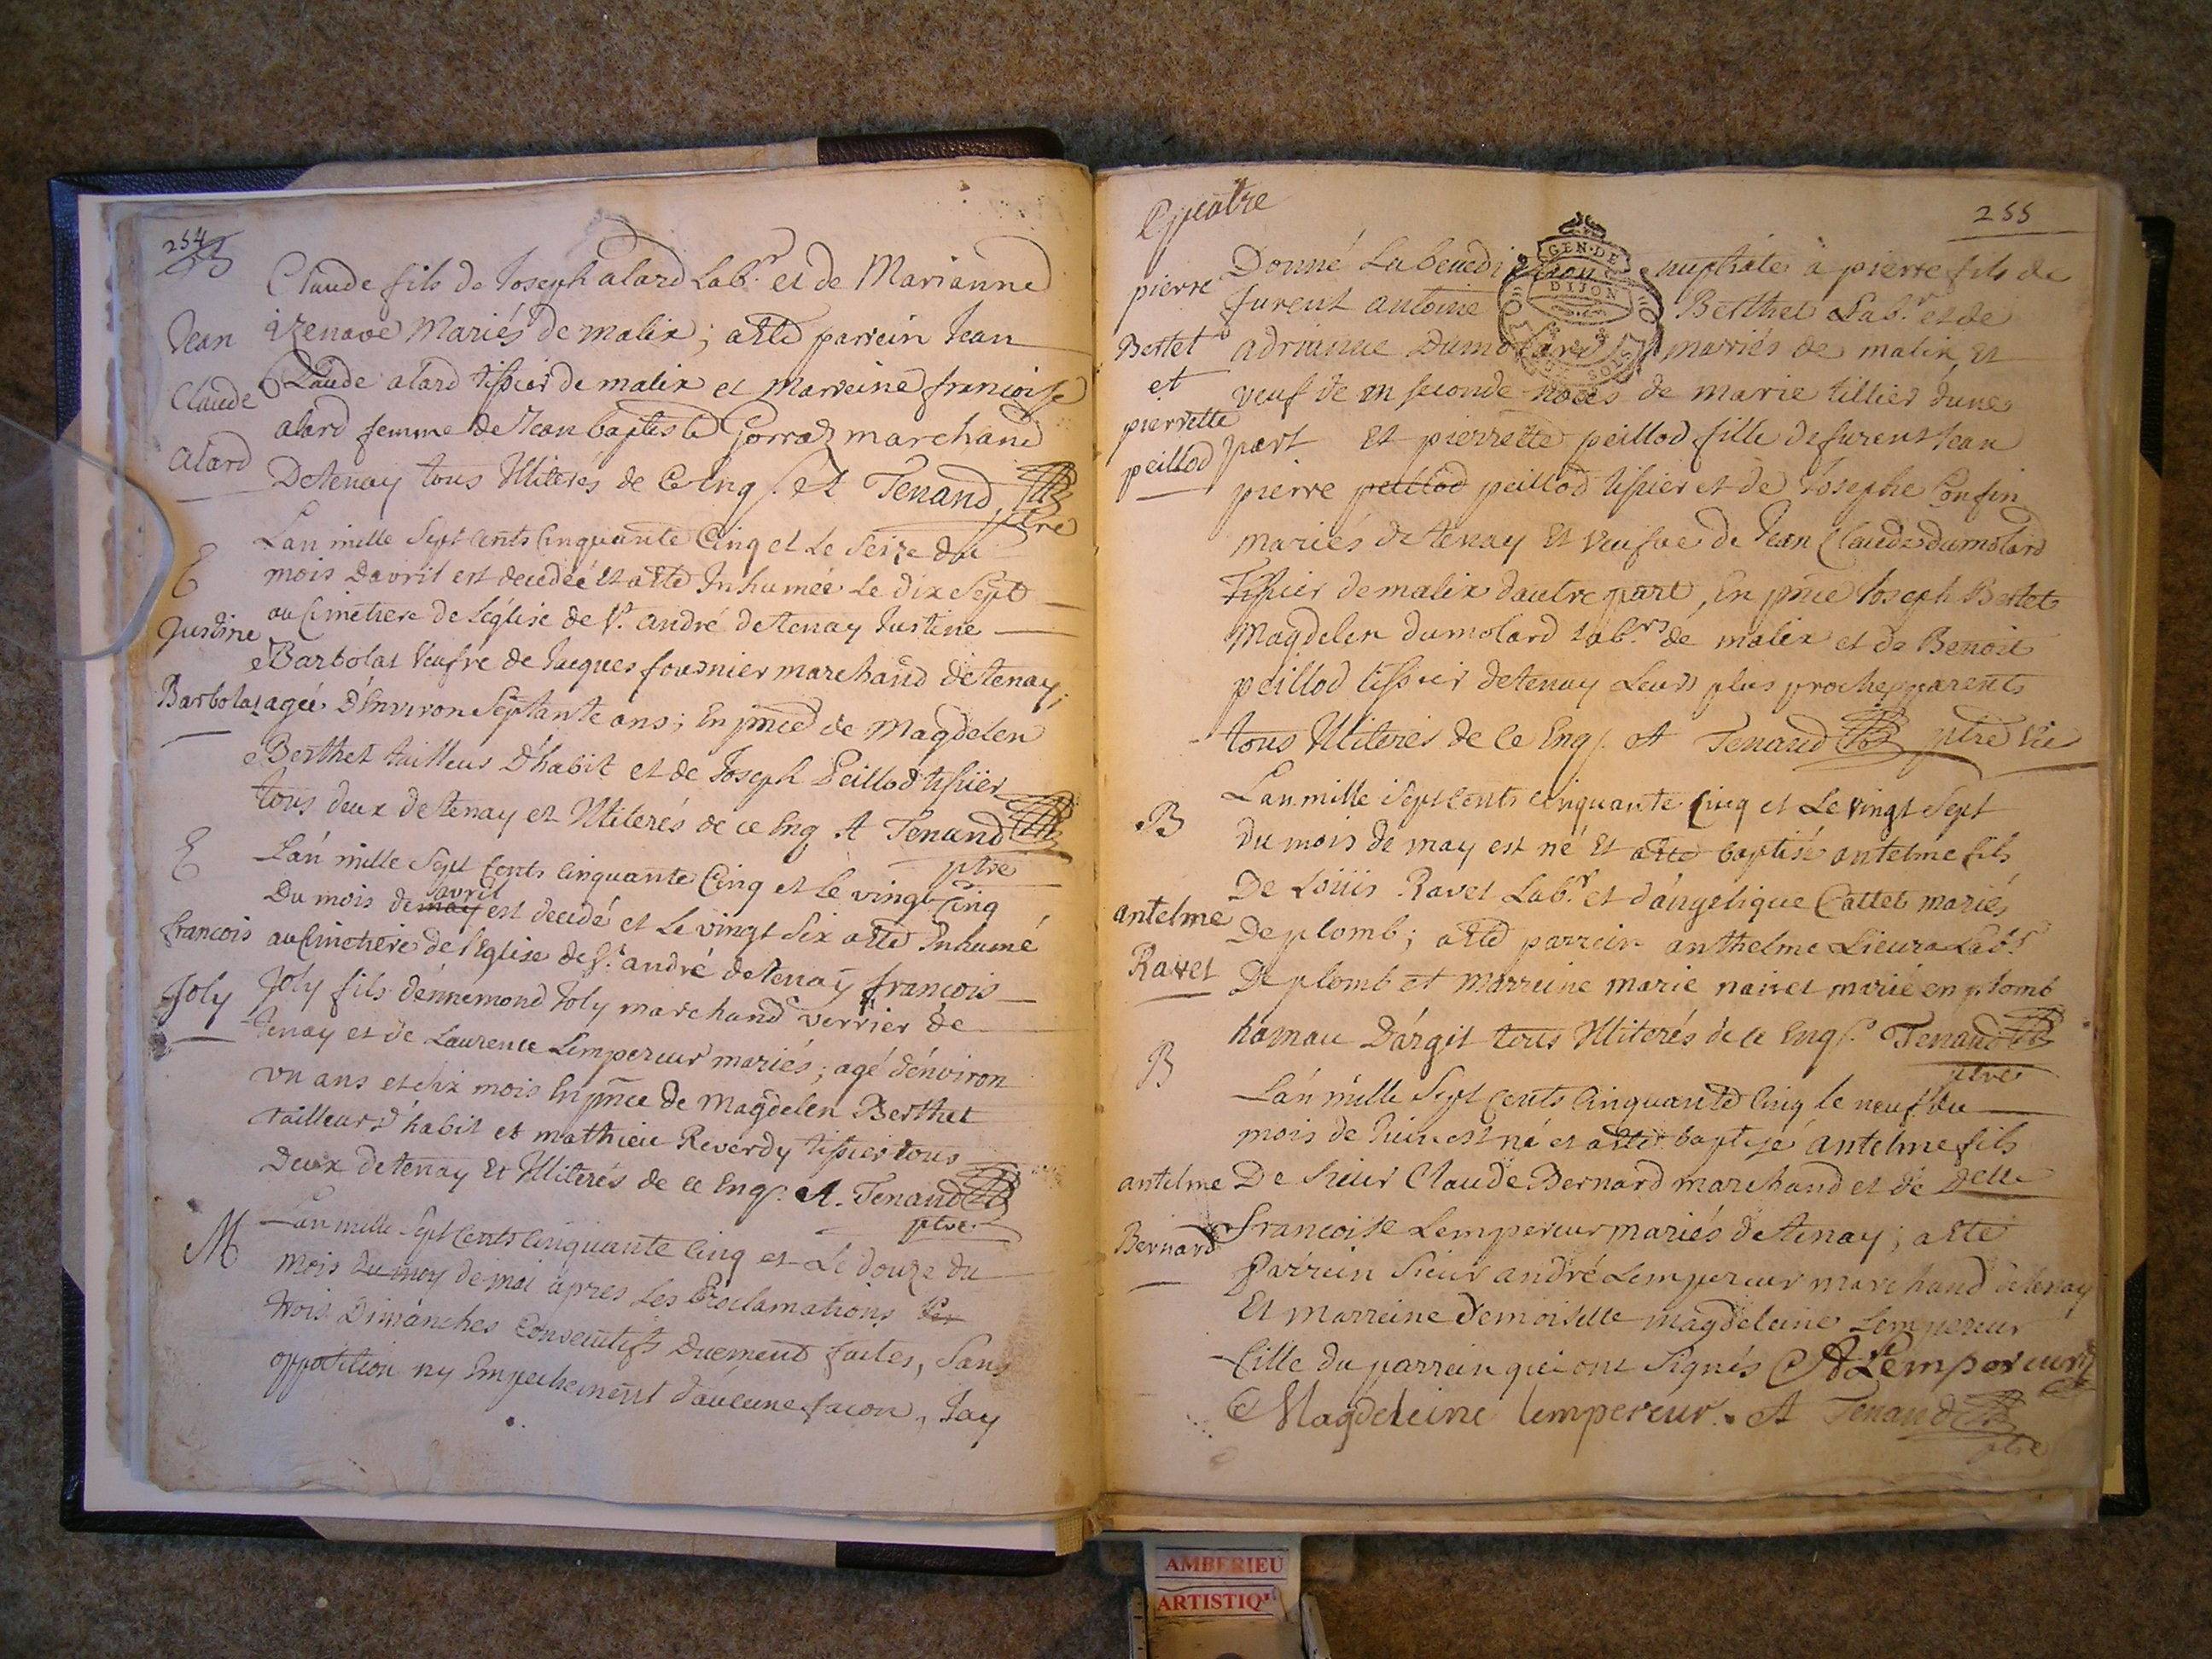 254
Claude fils de Joseph alard Lab.r et de Marianne
Jean
izenave Mariés de malix; a esté parrein Jean
Claude alard tissier de malix et Marreine françoise
Claude
alard femme de Jean baptiste Gorraz marchand
alard
De tenay tous Illiterés de ce Enq. A Tenand
ptre
E
Lan mille Sept Cents Cinquante Cinq et Le Seize du
mois D'avril est decedée et a esté Inhumée Le dix Sept
au Cimetiere de l'église de St. andré de tenay Justine
Justine
Barbolat Veufve de Jacques fournier marchand de tenay;
Barbolat
agée D'Environ Septante ans; En pnce de Magdelen
Berthet tailleur D'habit et de Joseph Peillod tissier
tous deux de tenay et Illiterés de ce Enq A Tenand
ptre
E
Lan mille Sept Cents Cinquante Cinq et Le vingt Cinq
avril
Du mois de may est decedé et Le vingt Six a esté Inhumé
francois
au Cimetiere de l'Eglise de St. andré de tenay francois
Joly
Joly fils dénnemond Joly marchand verrier de
tenay et de Laurence Lempereur mariés; agé d'énviron
vn ans et dix mois En pnce de Magdelen Berthet
tailleur d'habit et mathieu Reverdy tissier tous
Deux de tenay Et Illiterés de ce Enq. A. Tenand
ptre
M
Lan mille Sept Cents Cinquante Cinq et Le douze du
mois du may de mai après Les Proclamations
trois Dimanches Consecutifs Duement faites, Sans
opposition ny Empechement d'aulcune facon, Jay
Quatre
255
GEN. DE
DIJON
Donné La benediction nuptiale à pierre fils de
pierre
furent antoine Berthet Lab.r et de
Bertet
adrianne Dumolard mariés de malix Et
et
veuf de en seconde noces de marie tillier d'une
pierrette
part Et pierrette peillod fille de furent Jean
peillod
pierre petilod peillod tissier et de Josephe Confin
mariés de tenay Et Veufve de Jean Claude dumolard
Tissier de malix dautre part, En pnce Joseph Bertet
Magdelen dumolard Lab.rs de malix et de Benoit
peillod tissier de tenay Leurs plus proches parents
tous Illiterés de Ce Enq. A Tenand ptre Vic
B
Lan mille Sept Cents Cinquante Cinq et Le vingt Sept
du mois de may est né Et a esté baptisé antelme fils
De Loüis Ravet Lab.r et d'angélique Cattet mariés
antelme
De plomb; a esté parrein anthelme Lieura Lab.r
Ravet
De plomb et Marreine marie naivet marié en plomb
hamau D'argit tous Illiterés de ce Enq. Tenand
ptre
B
Lan mille Sept Cents Cinquante Cinq le neuf du
mois de Juin est né et a esté baptisé antelme fils
antelme
De sieur Claude Bernard marchand et de Delle
Bernard
francoise Lempereur mariés de tenay; a esté
Parrein Sieur andré Lempereur marchand de tenay
Et Marreine demoiselle magdeleine Lempereur
fille du parrein qui ont Signés A Lempereur
Magdeleine lempereur. A Tenand
ptre
AMBERIEU
ARTISTIQ